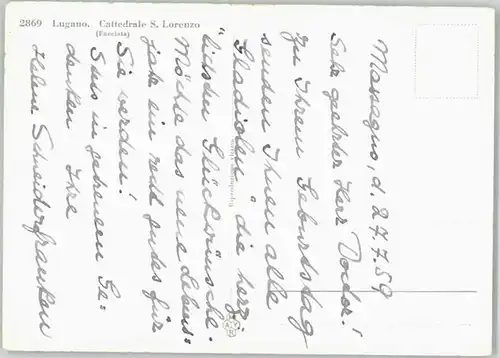 2869 Lugano. Cattedrale S. Lorenzo
(Facciata)
Massagno, d. 27.7.59
Sehr geehrter Herr Doctor!
Zu Ihrem Geburtstag
senden Ihnen alle
"Gladiolen" die herz-
lichsten Glückwünsche.
Möchte das neue Lebens-
jahr ein recht gutes für
Sie werden!
Sind in getreuem Ge-
denken Ihre
Helene Schneiderfranken